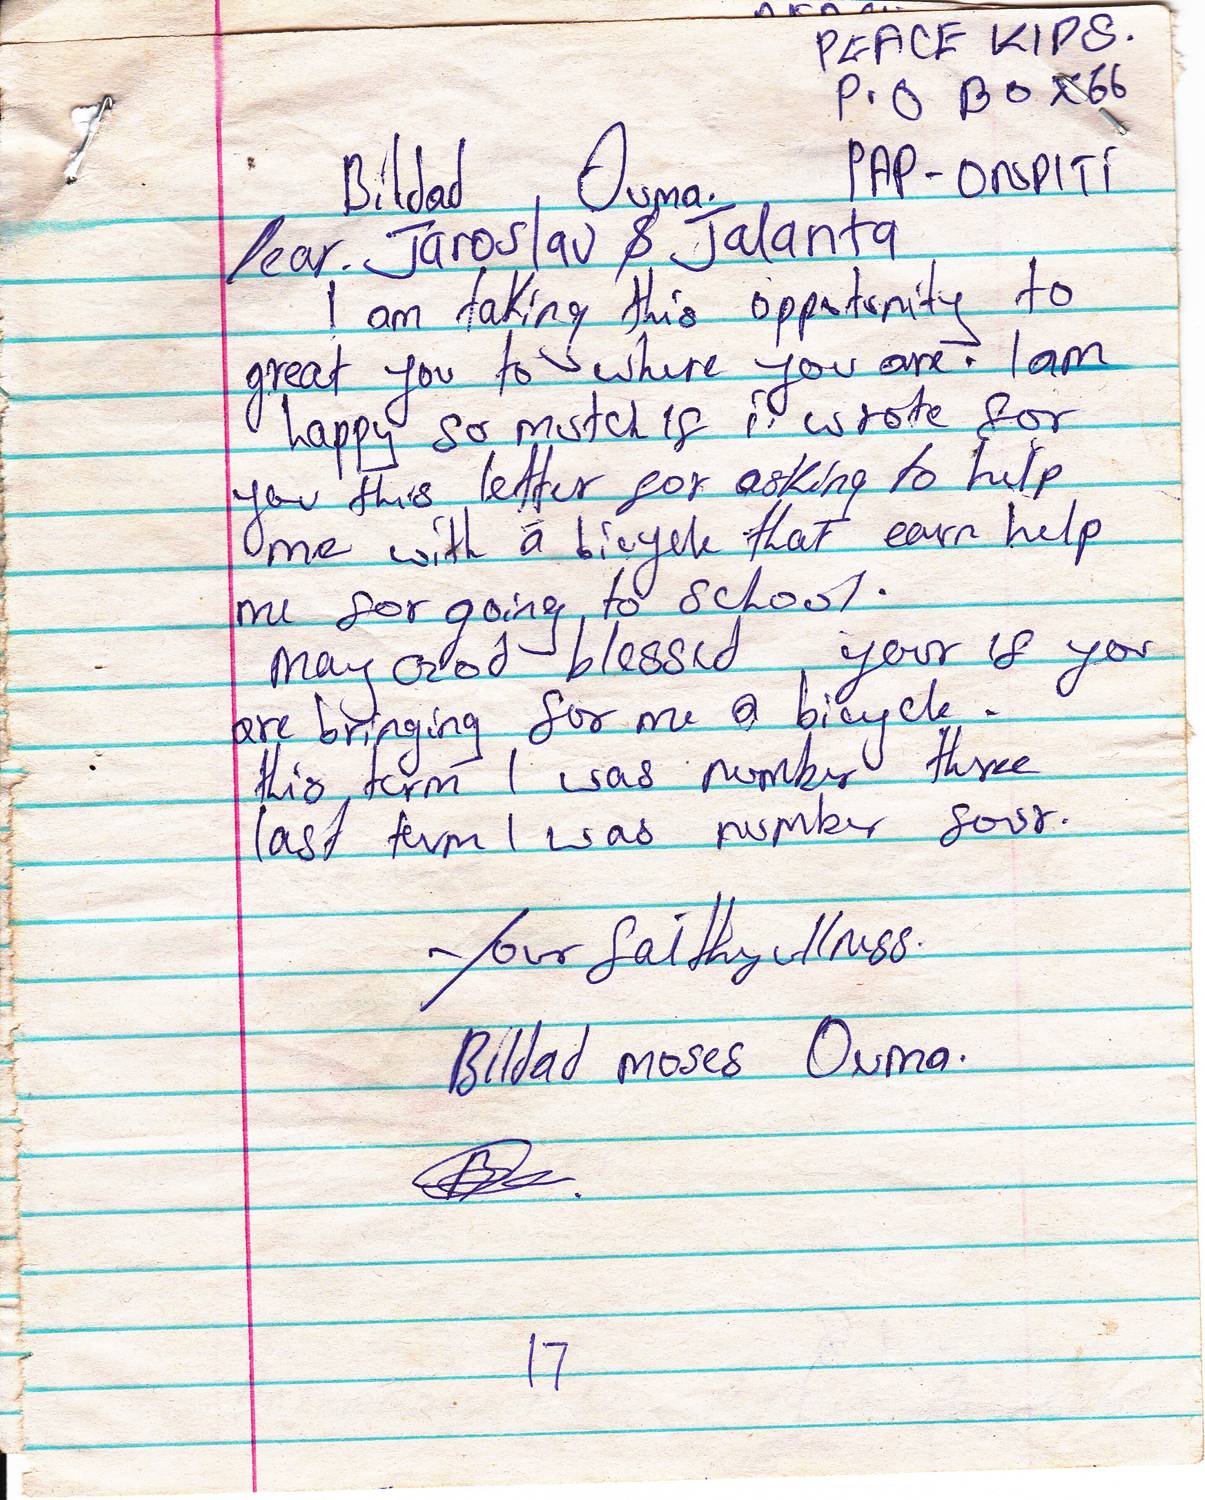 PEACE KIDS.
P.O BOX 66
PAP-ONDITI
Bildad Ouma.
Dear. Jaroslav & Jalanta
I am taking this oppotunity to
great you to where you are. I am
happy so mutch if i wrote for
you this letter for asking to help
me with a bicycle that earn help
me for going to school.
may God blessed your if you
are bringing for me a bicycle.
this term I was number three
last term I was number four.
Your faithyullness.
Bildad moses Ouma.
17